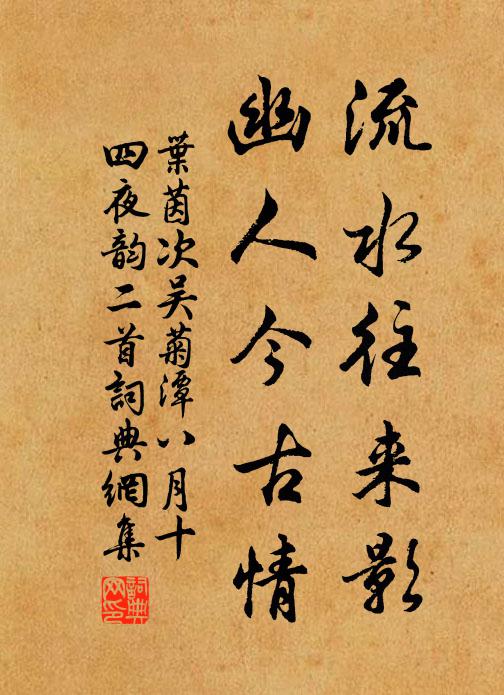 流水往来影
幽人今古情
葉茵次吴菊潭八月十
四夜韵二首詞典網集
詞典网印